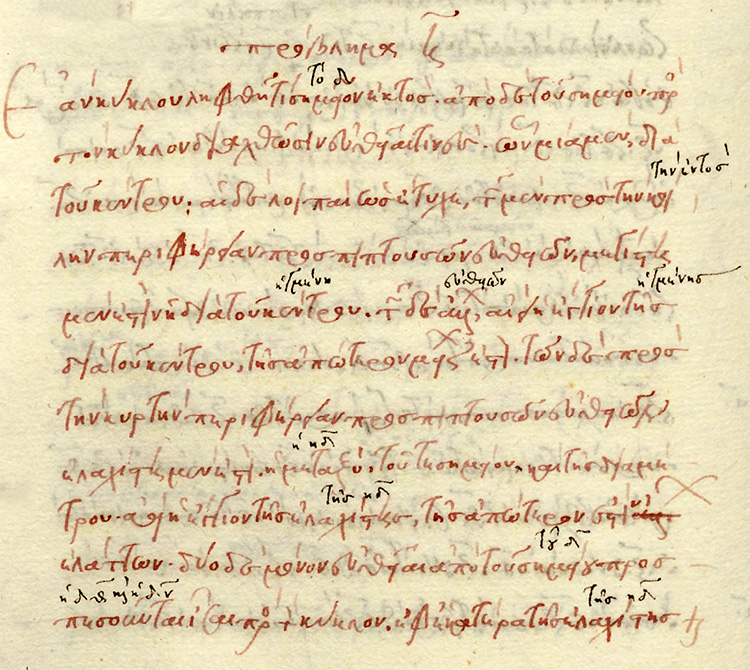 πρόβλημα ζ
τὸ δ
Ἐὰν κύκλου ληφθῇ τι σημεῖον ἐκτός· ἀπὸ δὲ τοῦ σημείου πρὸς
τὸν κύκλον διαχθῶσιν εὐθεῖαί τινες· ὧν μία μὲν, διὰ
τὴν ἐντὸς
τοῦ κέντρου· αἱ δὲ λοιπαὶ ὡς ἔτυχε, τῶν μὲν πρὸς τὴν κοί
λην περιφέρειαν προσπιπτουσῶν εὐθειῶν, μεγίστη
ἡ εὐθειῶν
μέν ἐστιν ἡ διὰ τοῦ κέντρου· τῶν δὲ ἄλλων, αἰεὶ ἡ ἔγγιον τῆς
διὰ τοῦ κέντρου, τῆς ἀπώτερον μείζων ἐστί· τῶν δὲ πρὸς
τὴν κυρτὴν περιφέρειαν προσπιπτουσῶν εὐθειῶν,
ἡ ηδ
ἐλαχίστη μέν ἐστιν ἡ μεταξὺ τοῦ τε σημείου, καὶ τῆς διαμέ
τῆς ηδ
τρου· ἀεὶ ἡ ἔγγιον τῆς ἐλαχίστης, τῆς ἀπώτερον ἐστὶν
τοῦ δ
ἐλάττων· δύο δὲ μόνον εὐθεῖαι ἀπὸ τοῦ σημείου προσ
τῆς ηδ
πεσοῦνται ἴσαι πρὸς τὸν κύκλον· ἐφ' ἑκάτερα τῆς ἐλαχίστης